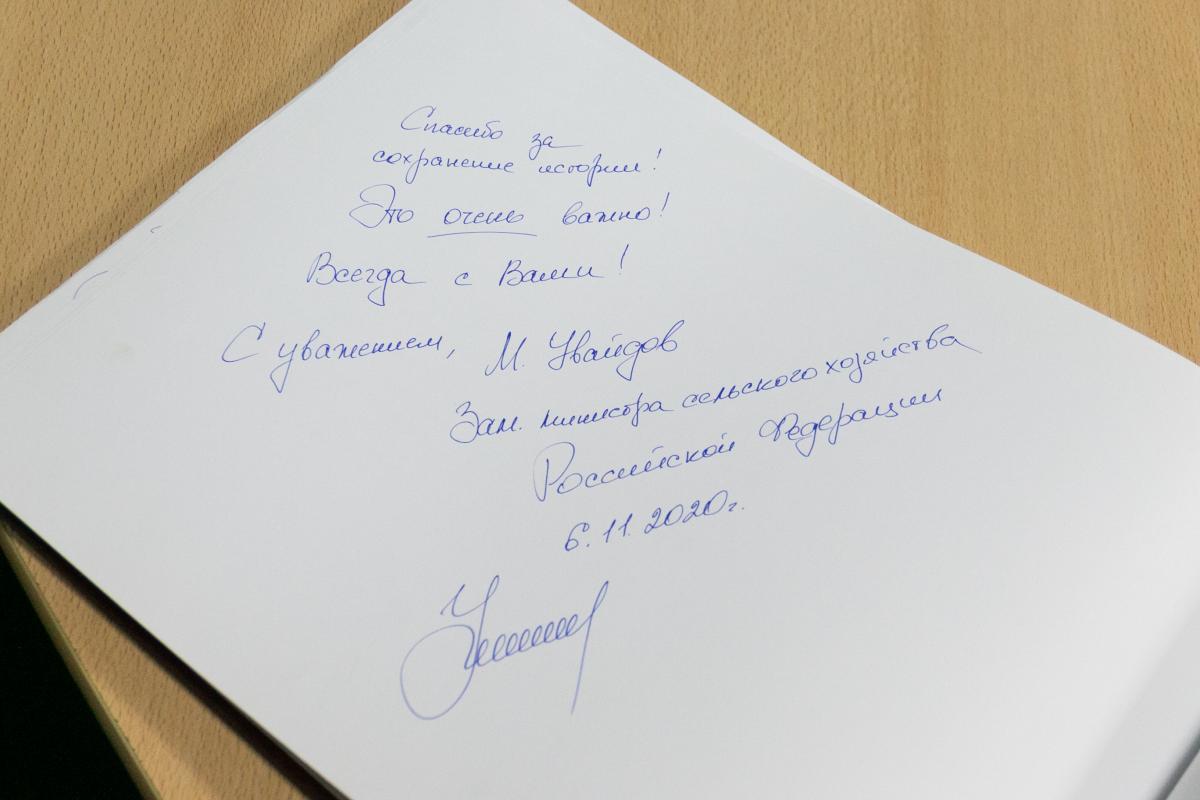 Спасибо за
сохранение истории!
Это очень важно!
Всегда с Вами!
С уважением, М. Увайдов
Зам. министра сельского хозяйства
Российской Федерации
6.11.2020г.